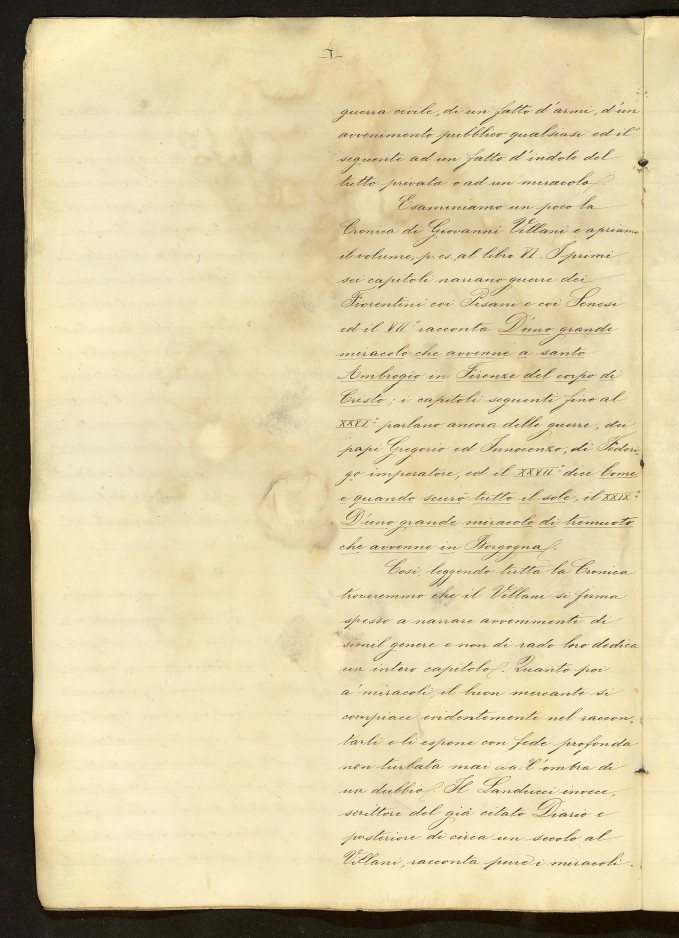 guerra civile, di un fatto d'armi, d'un
avvenimento pubblico qualsiasi ed il
seguente ad un fatto d'indole del
tutto privata o ad un miracolo.
Esaminiamo un poco la
Cronica di Giovanni Villani e apriamo
il volume, p. es, al libro VI. I primi
sei capitoli narrano guerre dei
Fiorentini coi Pisani e coi Senesi
ed il VII° racconta D'uno grande
miracolo che avvenne a santo
Ambrogio in Firenze del corpo di
Cristo; i capitoli seguenti fino al
XXVI° parlano ancora delle guerre, dei
papi Gregorio ed Innocenzo, di Federi-
go imperatore, ed il XXVII° dice Come
e quando scurò tutto il sole, il XXIX°
D'uno grande miracolo di tremuoto
che avvenne in Borgogna.
Così, leggendo tutta la Cronica
troveremmo che il Villani si ferma
spesso a narrare avvenimenti di
simil genere e non di rado loro dedica
un intero capitolo. Quanto poi
a' miracoli, il buon mercante si
compiace evidentemente nel raccon-
tarli e li espone con fede profonda
non turbata mai dall'ombra di
un dubbio. Il Landucci invece,
scrittore del già citato Diario e
posteriore di circa un secolo al
Villani, racconta pure i miracoli